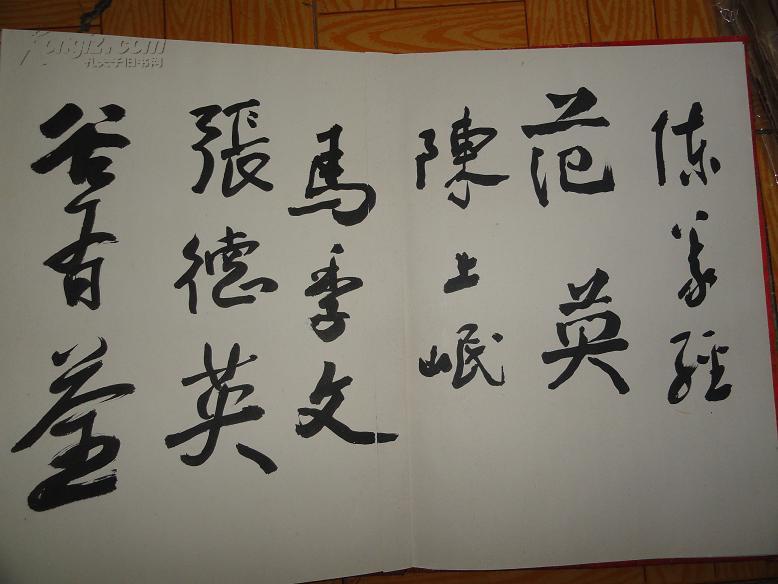 陈义经
范英
陳上岷
馬季文
張德英
谷有荃
Kongfz.com
孔夫子旧书网